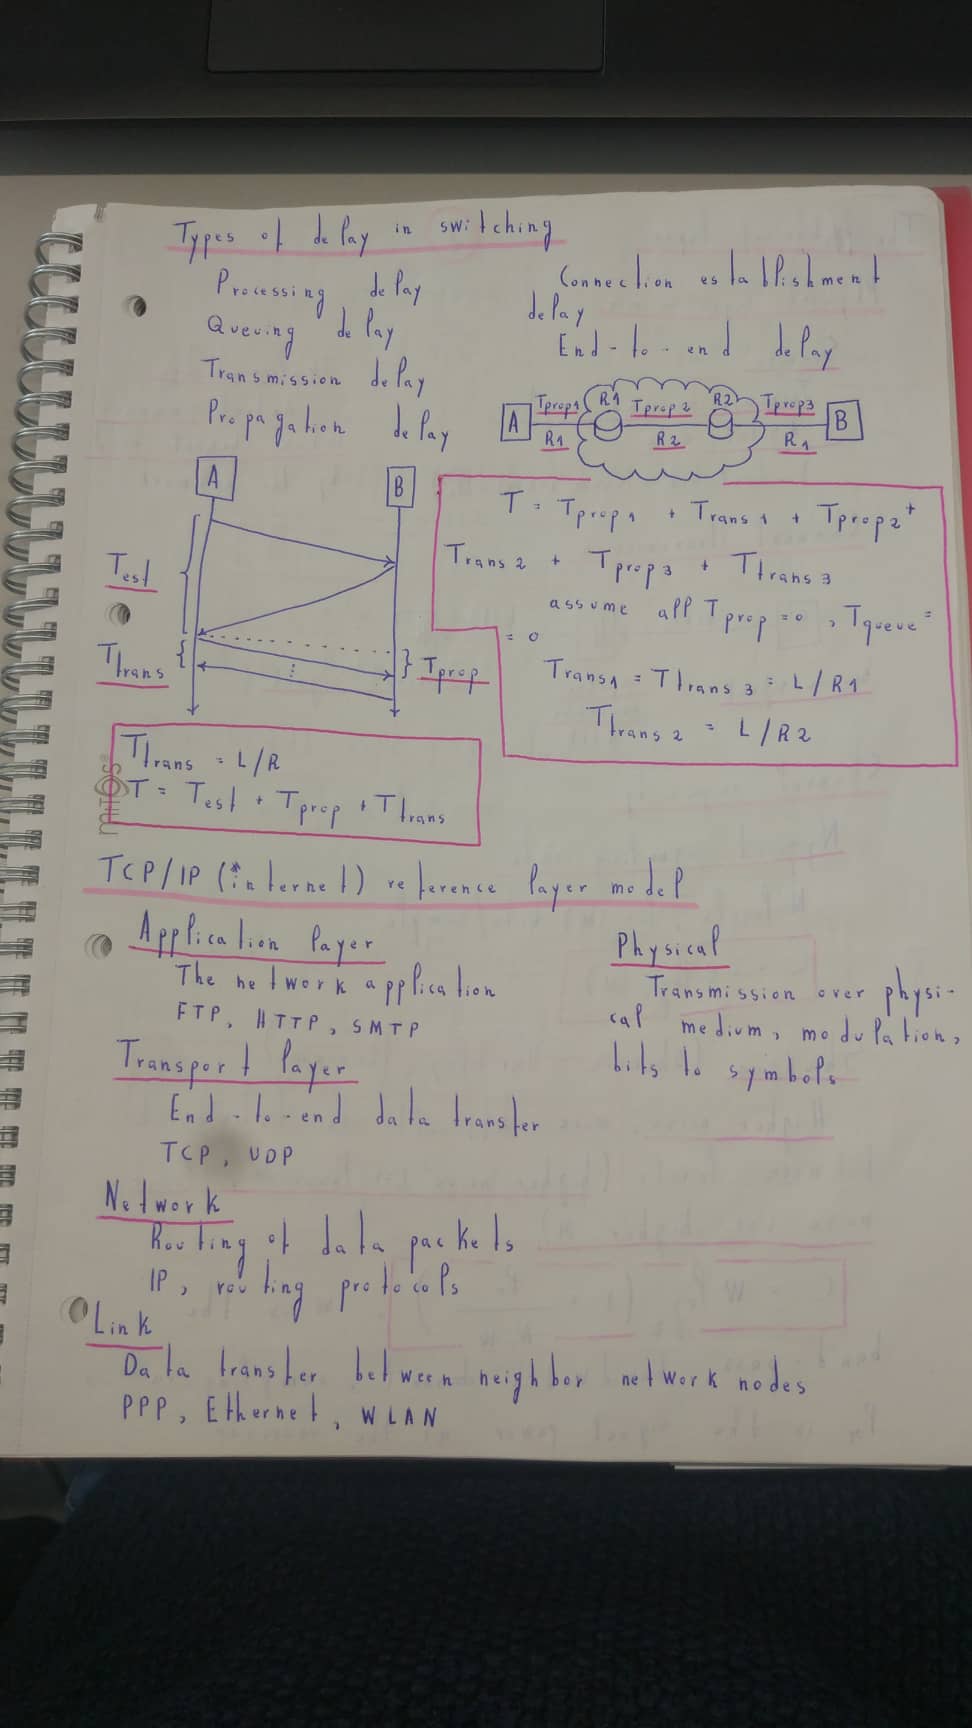 Types of delay in switching
Processing delay
Queuing delay
Transmission delay
Propagation delay
Connection establishment
delay
End-to-end delay
A Tprop1 R1 Tprop2 R2 Tprop3 B
R1 R2 R1
A B
Test
Ttrans
Tprop
T = Tprop1 + Trans1 + Tprop2 +
Trans2 + Tprop3 + Ttrans3
assume all Tprop = 0, Tqueue =
= 0
Trans1 = Ttrans3 = L/R1
Ttrans2 = L/R2
Ttrans = L/R
T = Test + Tprop + Ttrans
TCP/IP (*internet) reference layer model
Application layer
The network application
FTP, HTTP, SMTP
Transport layer
End-to-end data transfer
TCP, UDP
Network
Routing of data packets
IP, routing protocols
Link
Data transfer between neighbor network nodes
PPP, Ethernet, WLAN
Physical
Transmission over physi-
cal medium, modulation,
bits to symbols